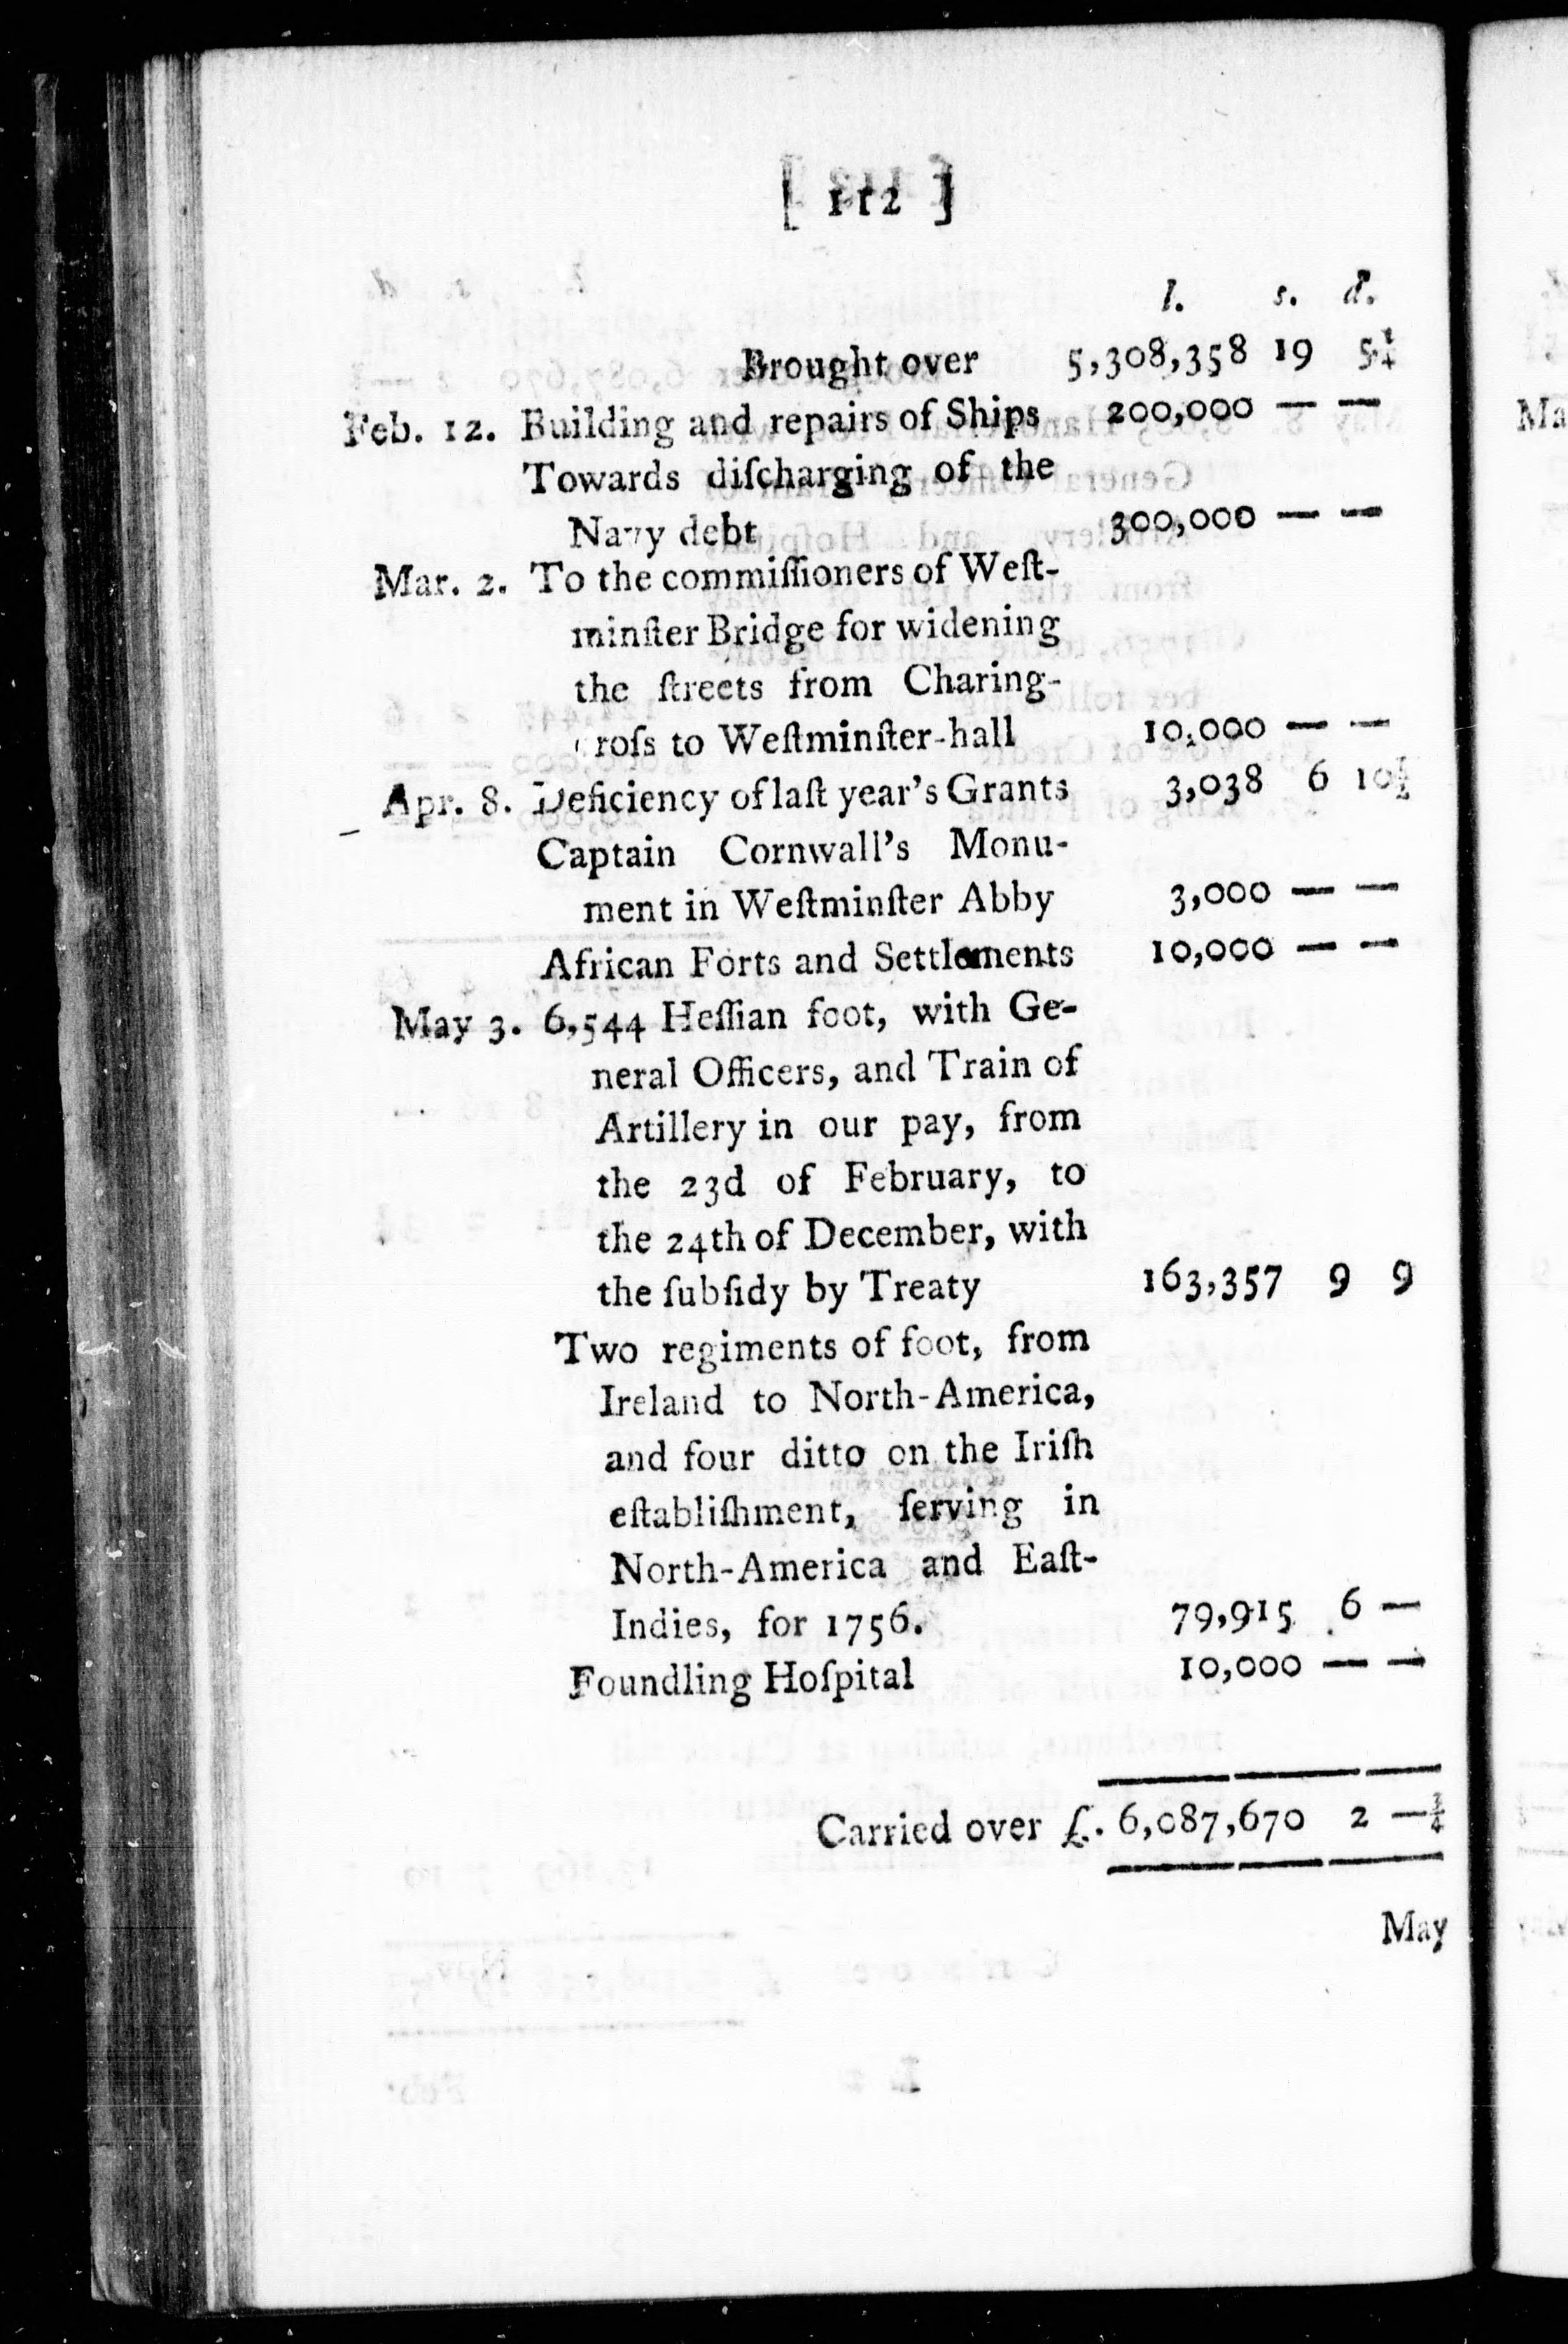 [ 112 ]
l. s. d.
Brought over 5,308,358 19 5¼
Feb. 12. Building and repairs of Ships 200,000 — —
Towards diſcharging of the
Navy debt 300,000 — —
Mar. 2. To the commiſſioners of Weſt-
minſter Bridge for widening
the ſtreets from Charing-
roſs to Weſtminſter-hall 10,000 — —
Apr. 8. Deficiency of laſt year's Grants 3,038 6 10½
Captain Cornwall's Monu-
ment in Weſtminſter Abby 3,000 — —
African Forts and Settlements 10,000 — —
May 3. 6,544 Heſſian foot, with Ge-
neral Officers, and Train of
Artillery in our pay, from
the 23d of February, to
the 24th of December, with
the ſubſidy by Treaty 163,357 9 9
Two regiments of foot, from
Ireland to North-America,
and four ditto on the Iriſh
eſtabliſhment, ſerving in
North-America and Eaſt-
Indies, for 1756. 79,915 6 —
Foundling Hoſpital 10,000 — —
Carried over £. 6,087,670 2 —¾
May
Ma